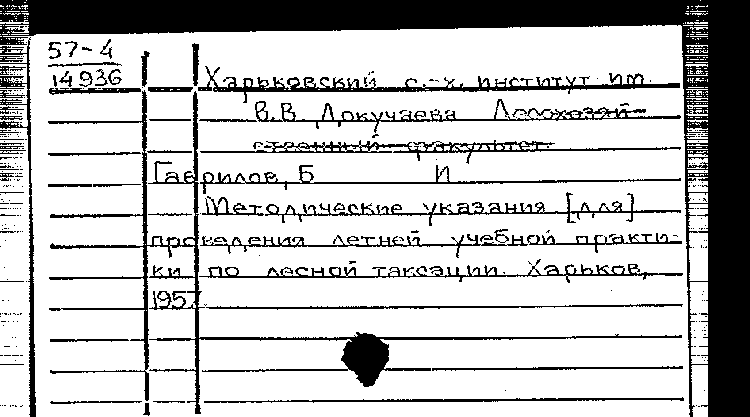 57-4
14936
Харьковский с.-х. институт им.
В.В. Докучаева Лесохозяй-
ственный факультет
Гаврилов, Б И
Методические указания [для]
проведения летней учебной практи-
ки по лесной таксации. Харьков,
1957